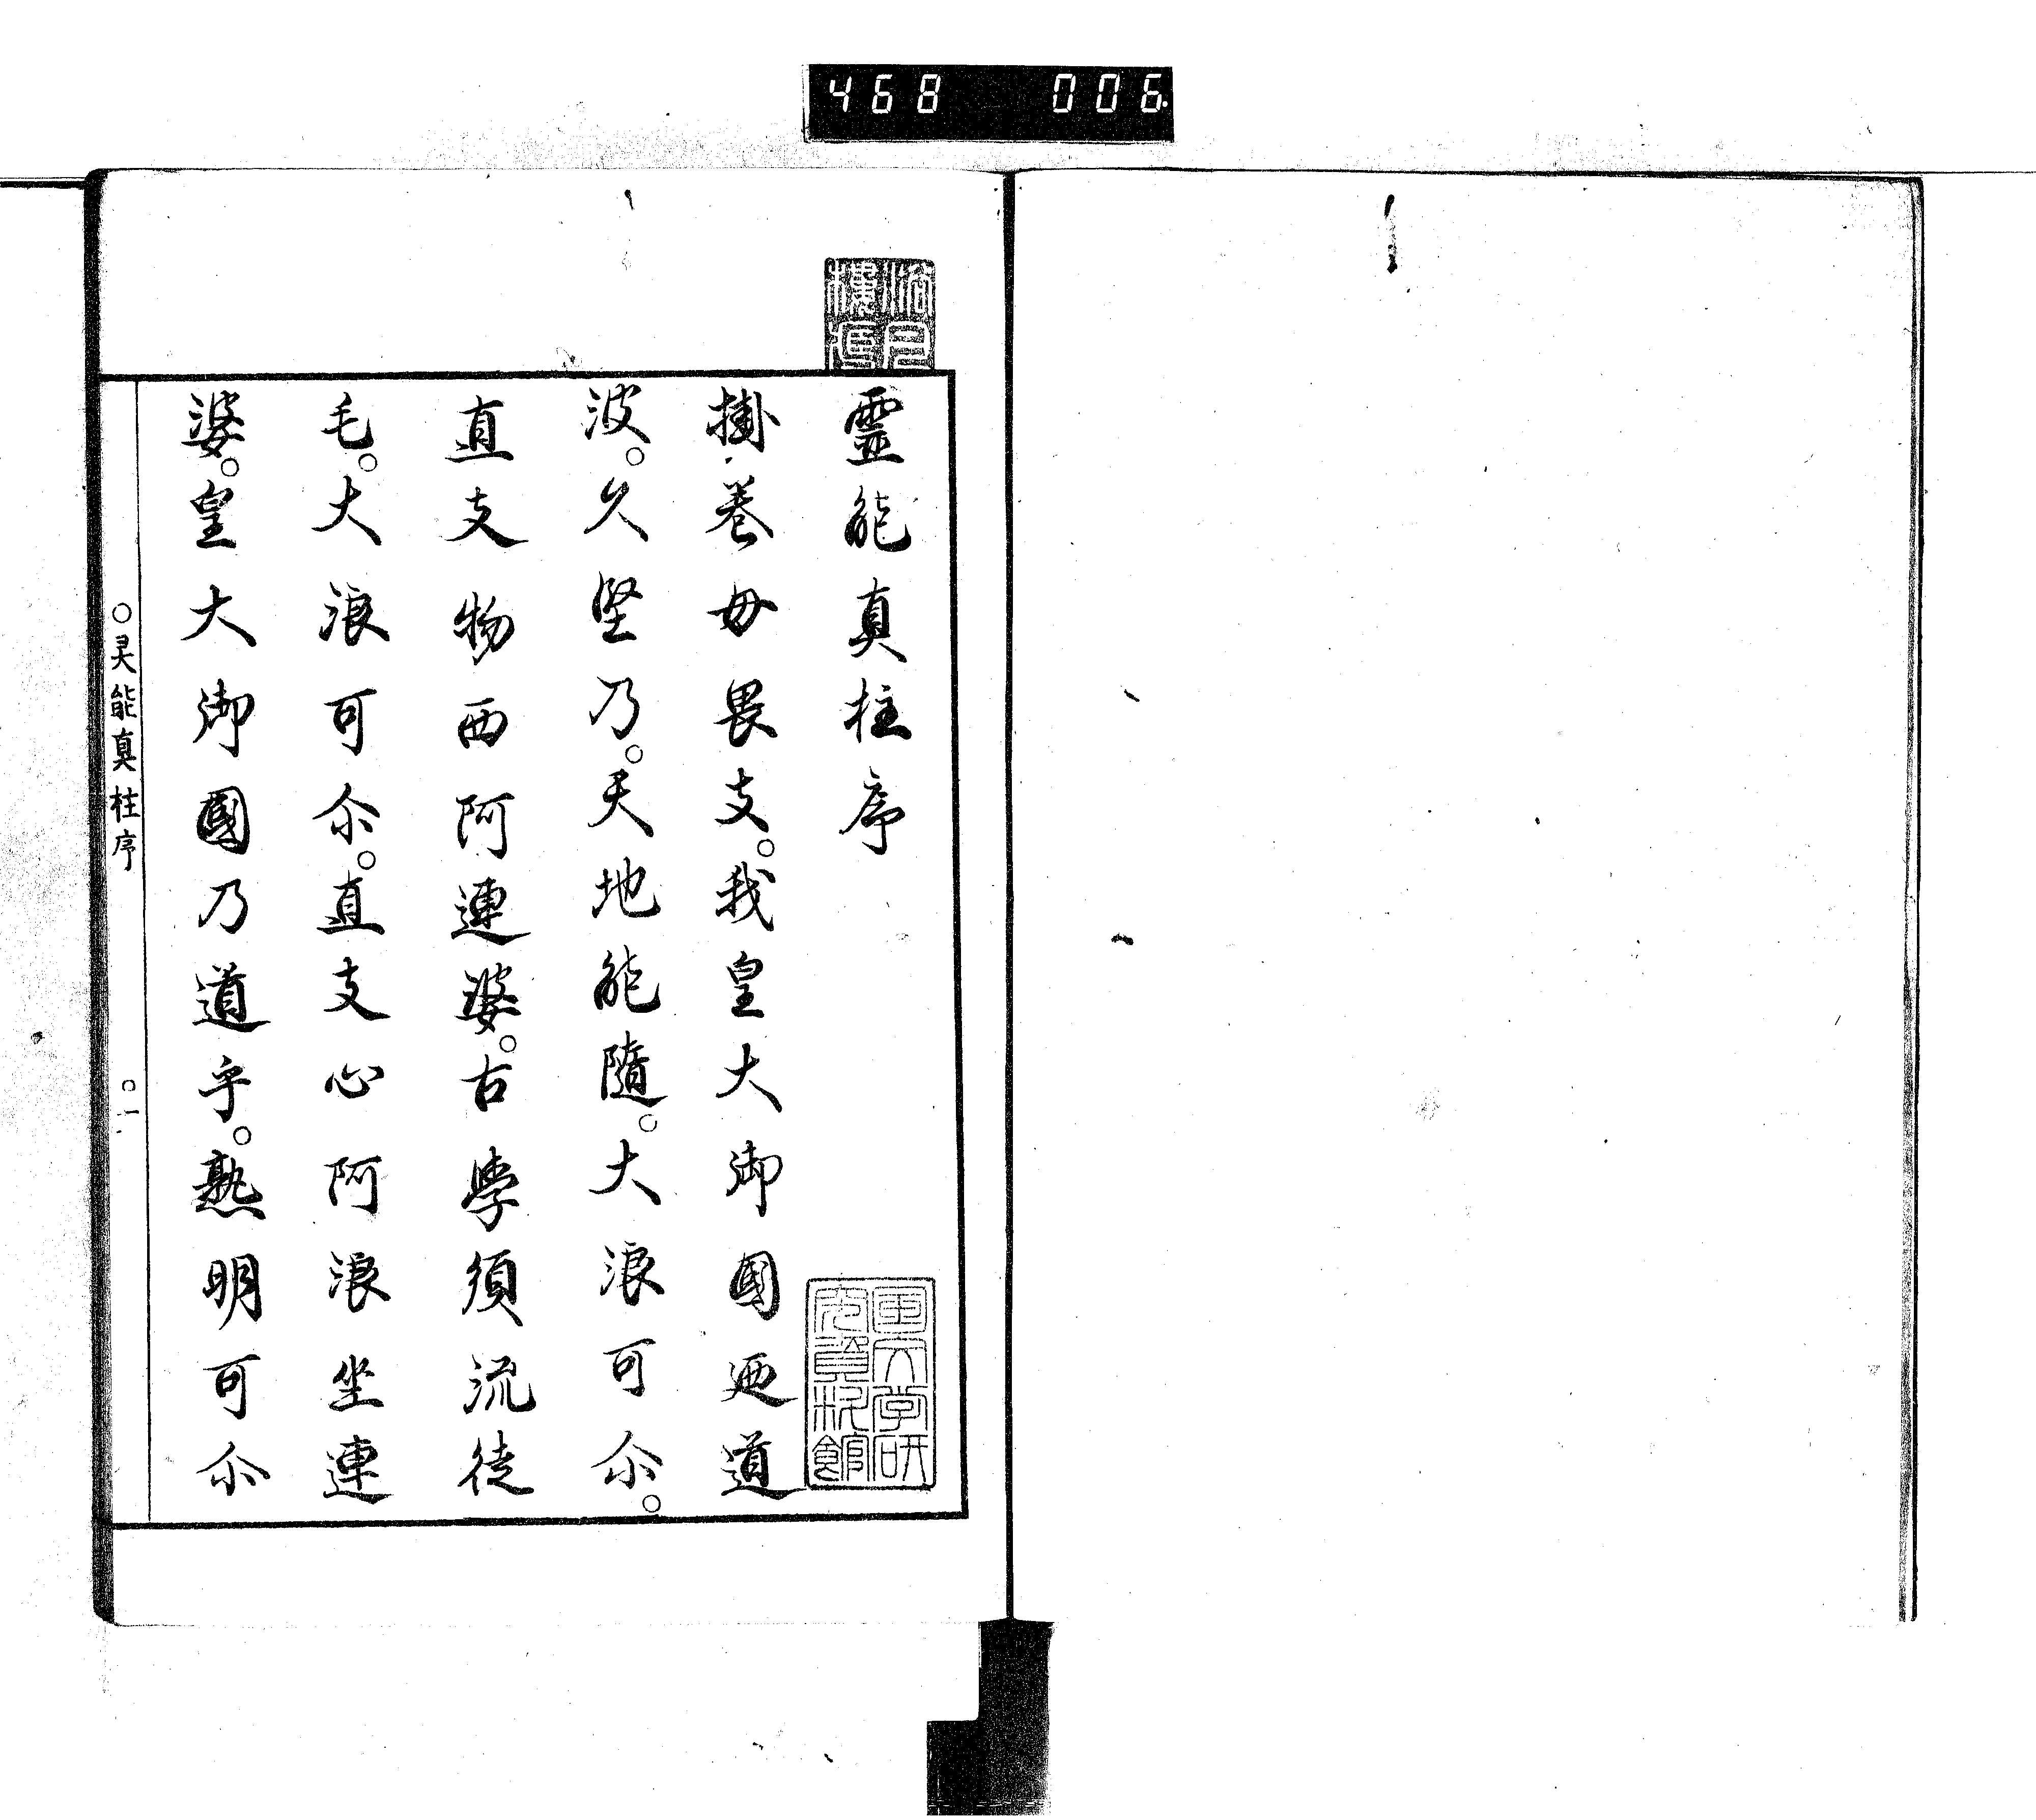 468 006.
靈能真柱序
掛卷毋畏支。我皇大御國迺道
波。久堅乃。天地能隨。大浪可尒。
直支物西阿連婆。古學須流徒
毛。大浪可尒。直支心阿浪坐連
婆。皇大御國乃道乎。熟明可尒
○灵能真柱序
○一
国文学研
究資料館